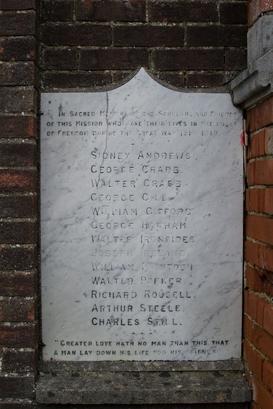 In Sacred Memory of the Scholars, and Friends
of this Mission who gave their lives in the cause
of Freedom during the Great War 1914 - 1918.
Sidney Andrews
George Crabb
Walter Crabb
George Gill
William Gifford
George
Walter Ironsides
Joseph
William
Walter Parker
Richard Rousell
Arthur Steele
Charles Still
"Greater love hath no man than this that
a man lay down his life for his friends"